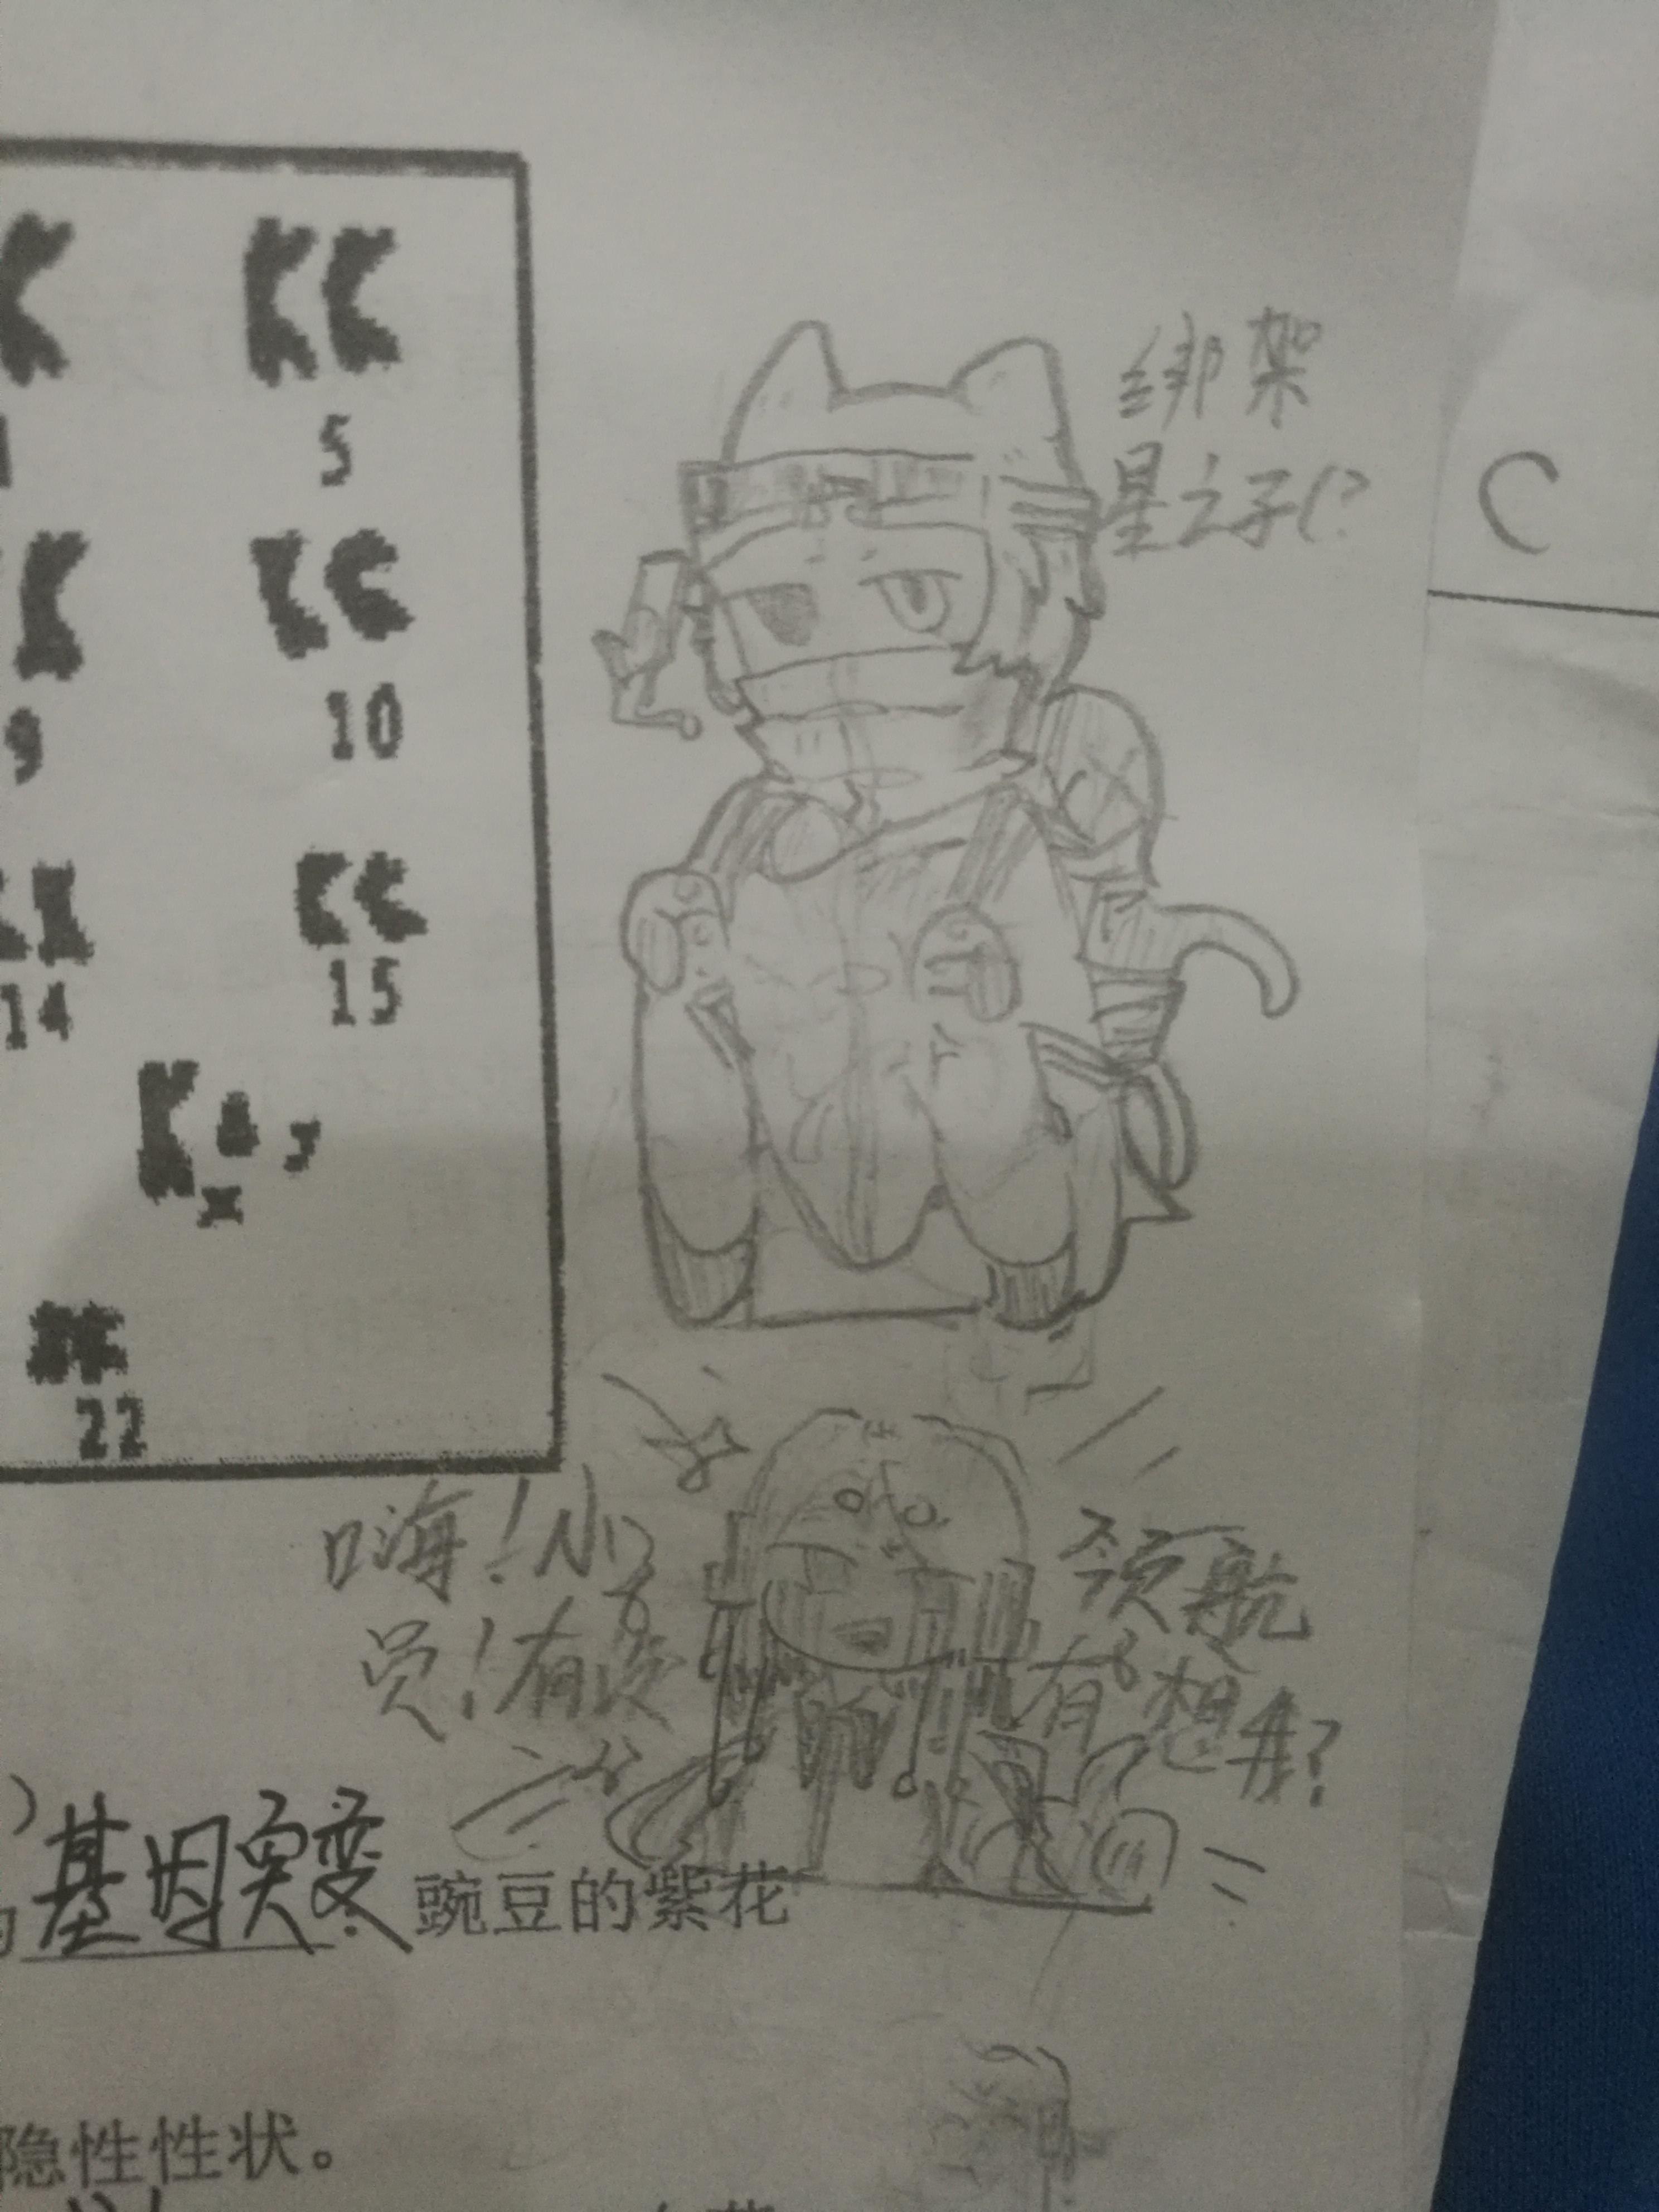 5
9
10
14
15
x
y
22
绑架
星之子(?
C
嗨！小
领航
员！有没
有想我?
)
基因突变豌豆的紫花
隐性性状。